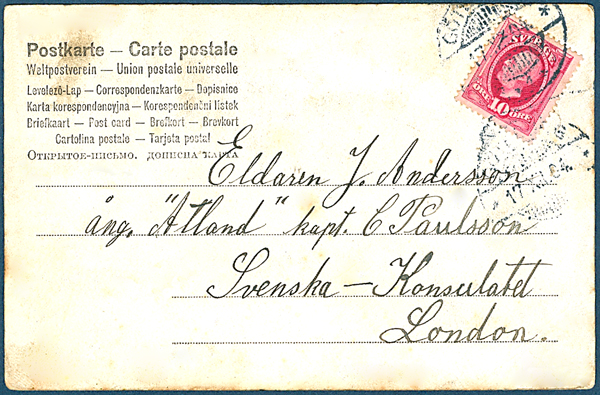 Postkarte — Carte postale
Weltpostverein — Union postale universelle
Levelező-Lap — Correspondenzkarte — Dopisnice
Karta korespondencyjna — Korespondenční lístek
Briefkaart — Post card — Brefkort — Brevkort
Cartolina postale — Tarjeta postal
Открытое-письмо. дописна карта
SVERIGE
10
ÖRE ÖRE
GÖT
17
Eldaren J. Andersson
ång. "Atland" kapt. C Paulsson
Svenska — Konsulatet
London.